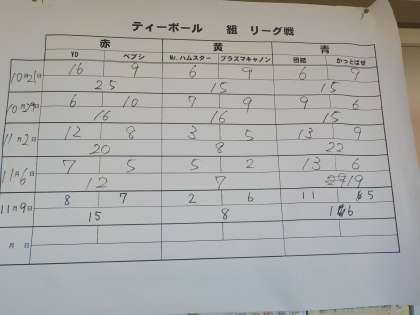 ティーボール 組 リーグ戦
赤 黄 青
YD ペプシ Mr.ハムスター プラズマキャノン 団結 かっとばせ
10月21日 16 9 6 9 6 9
25 15 15
10月29日 6 10 7 9 9 6
16 16 15
11月2日 12 8 3 5 13 9
20 8 22
11月6日 7 5 5 2 13 6
12 7 19
11月9日 8 7 2 6 11 5
15 8 16
月 日